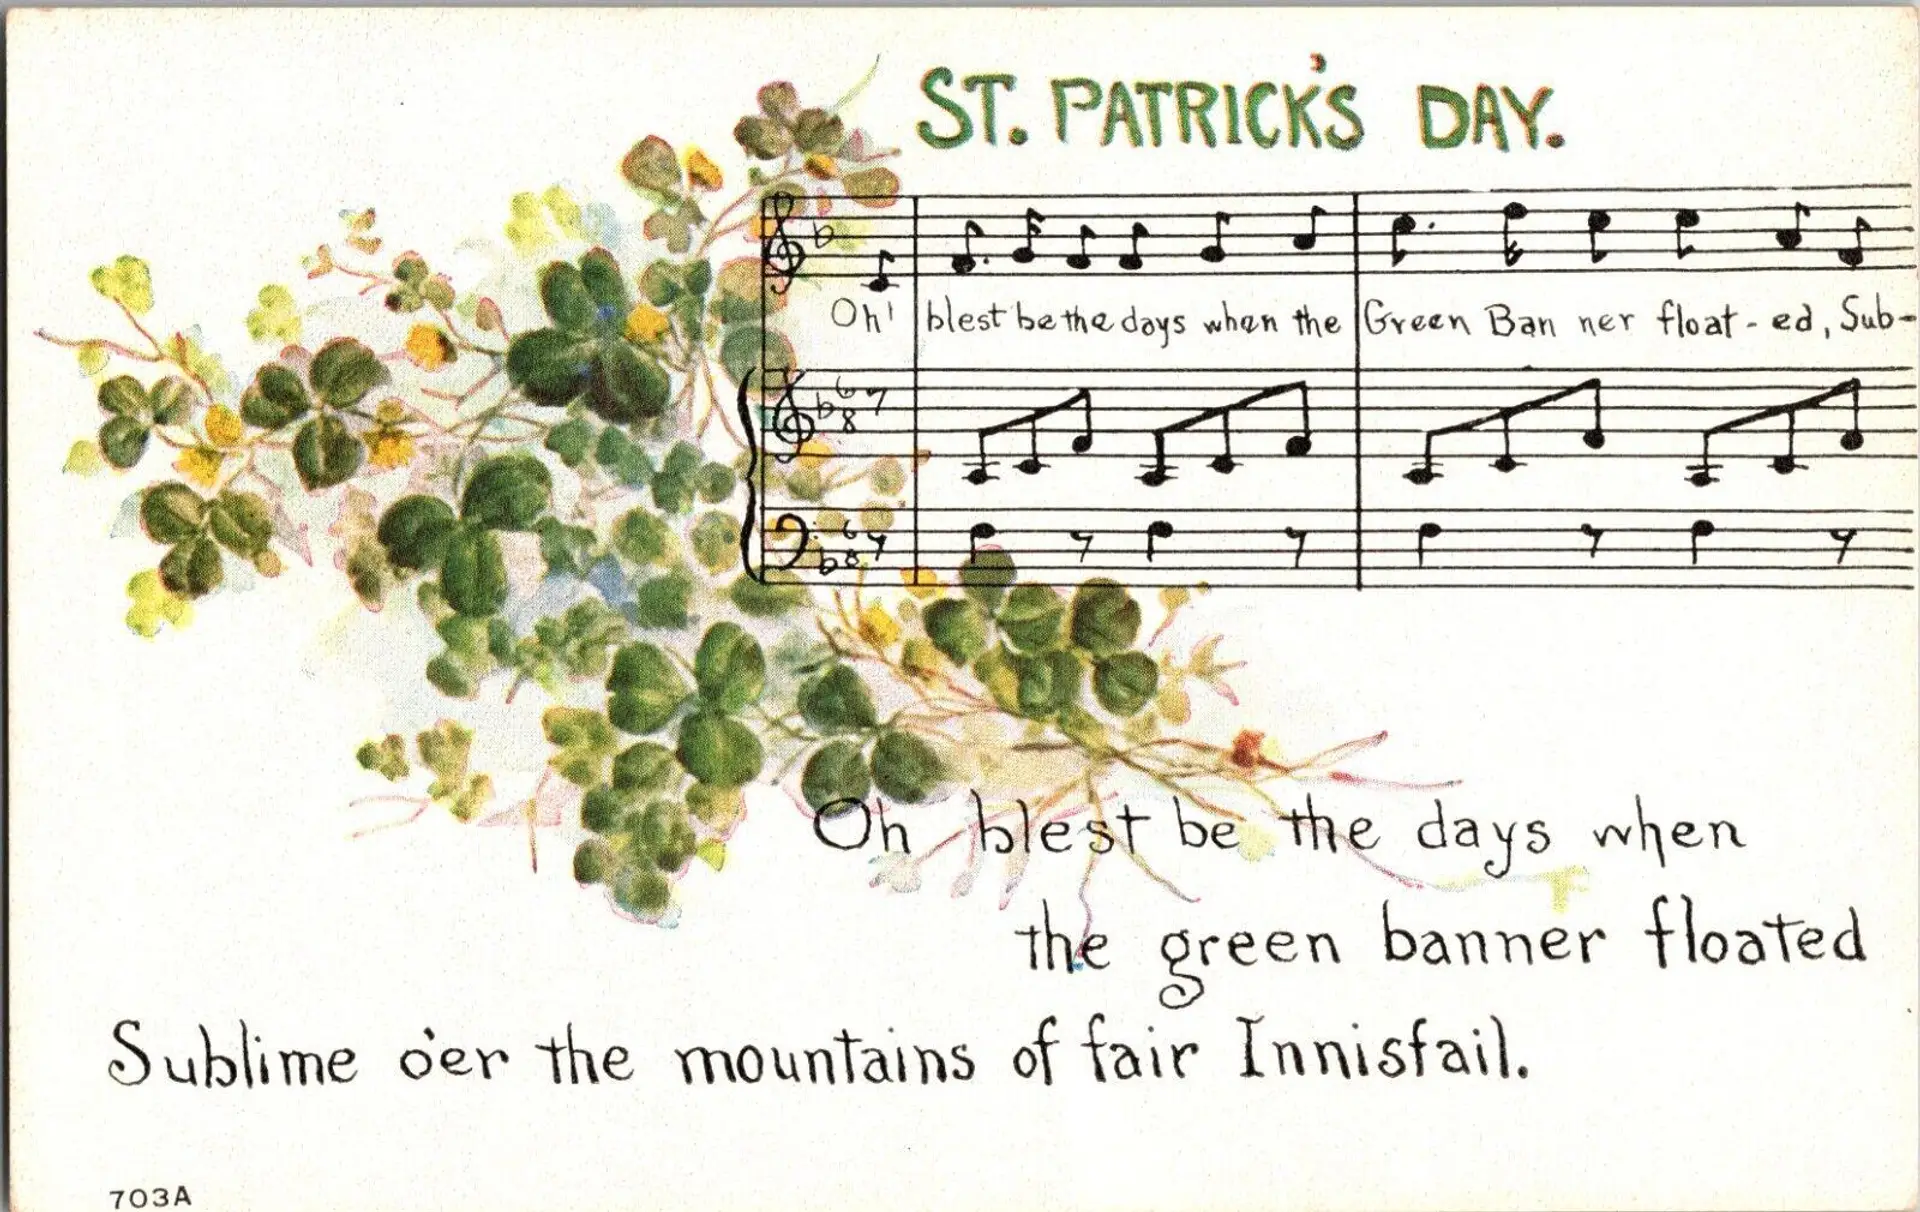 ST. PATRICK'S DAY.
Oh! blest be the days when the Green Ban ner float-ed, Sub-
6 8
6 8
Oh blest be the days when
the green banner floated
Sublime o'er the mountains of fair Innisfail.
703A